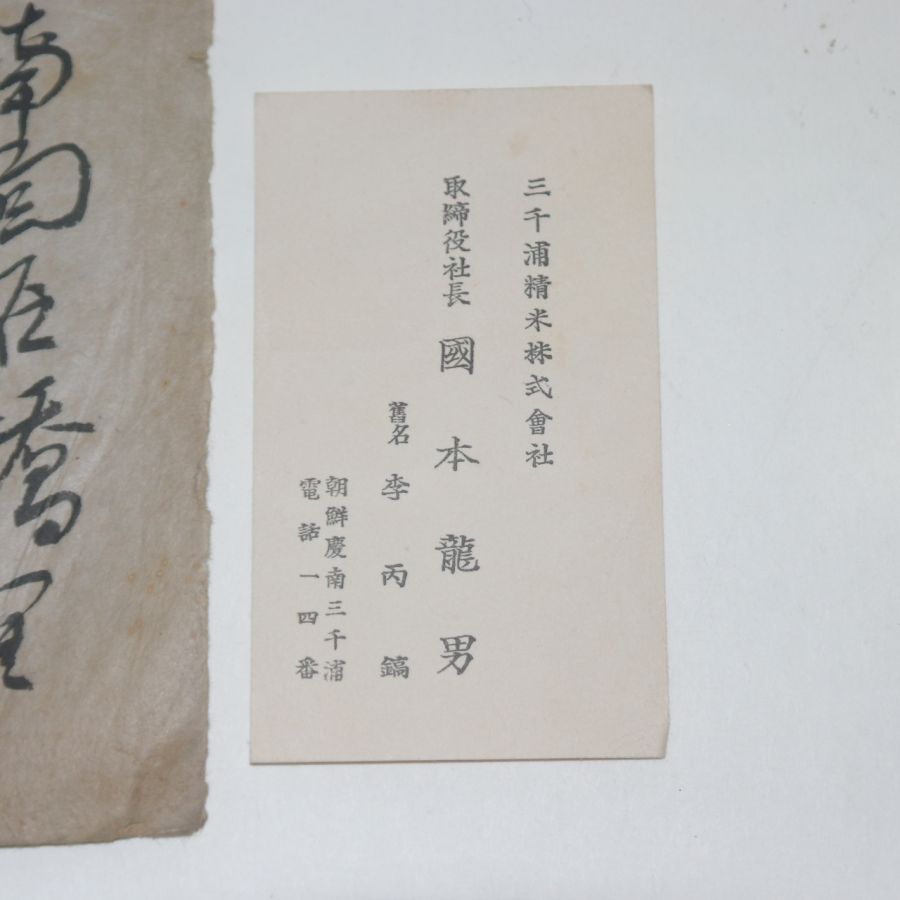 三千浦精米株式會社
取締役社長 國本龍男
舊名 李丙鎬
朝鮮慶南三千浦
電話一四番
南
里